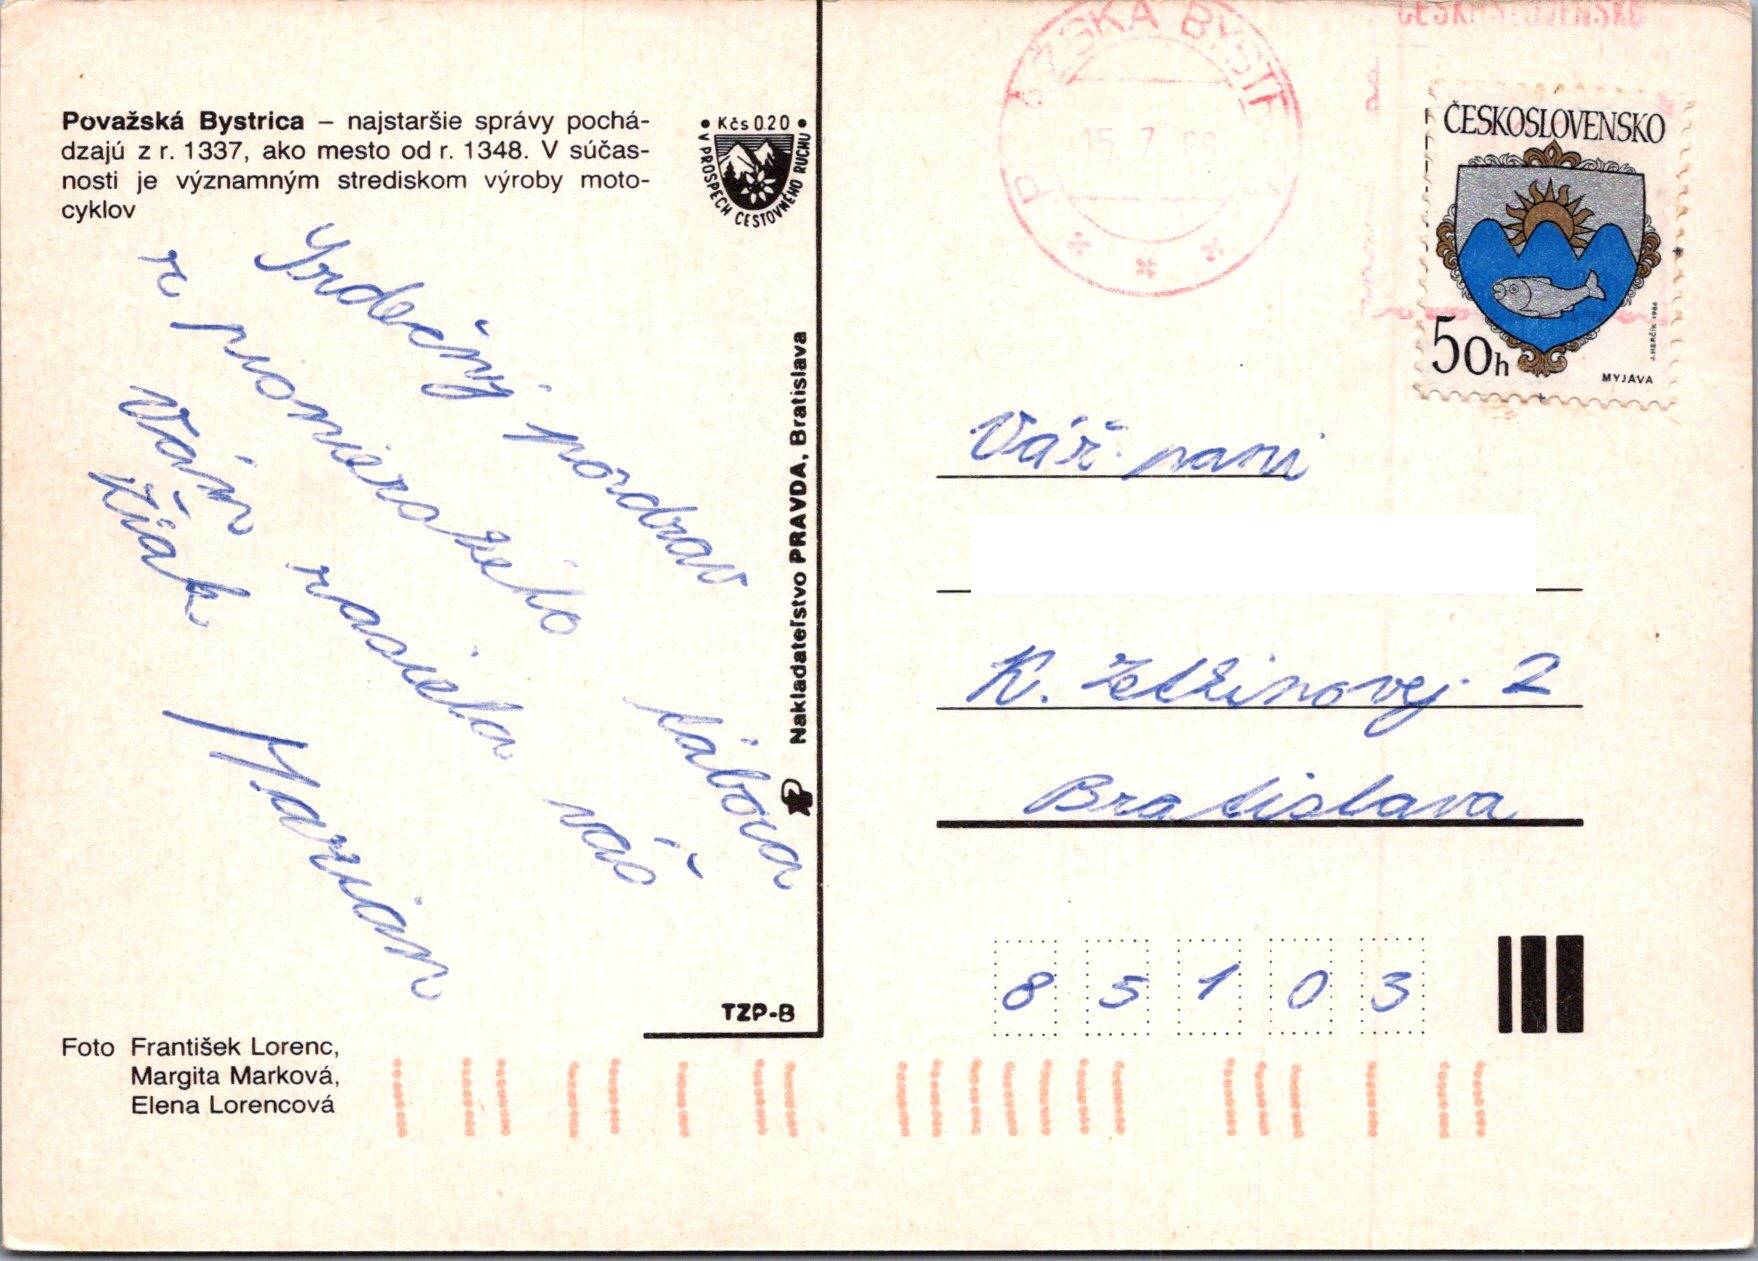 Považská Bystrica – najstaršie správy pochá-
dzajú z r. 1337, ako mesto od r. 1348. V súčas-
nosti je významným strediskom výroby moto-
cyklov
• Kčs 0.20 •
V PROSPECH CESTOVNÉHO RUCHU
Srdečný pozdrav
z pionierskeho tábora
Vám zasiela váš
žiak
Marián
Nakladateľstvo PRAVDA, Bratislava
TZP-B
Foto František Lorenc,
Margita Marková,
Elena Lorencová
P ŽSKÁ BYSTR
15. 7. 86
ČESKOSLOVENSKO
ČESKOSLOVENSKO
50h
J. HERČÍK 1986
MYJAVA
Váž. pani
K. Zetkinovej 2
Bratislava
8 5 1 0 3